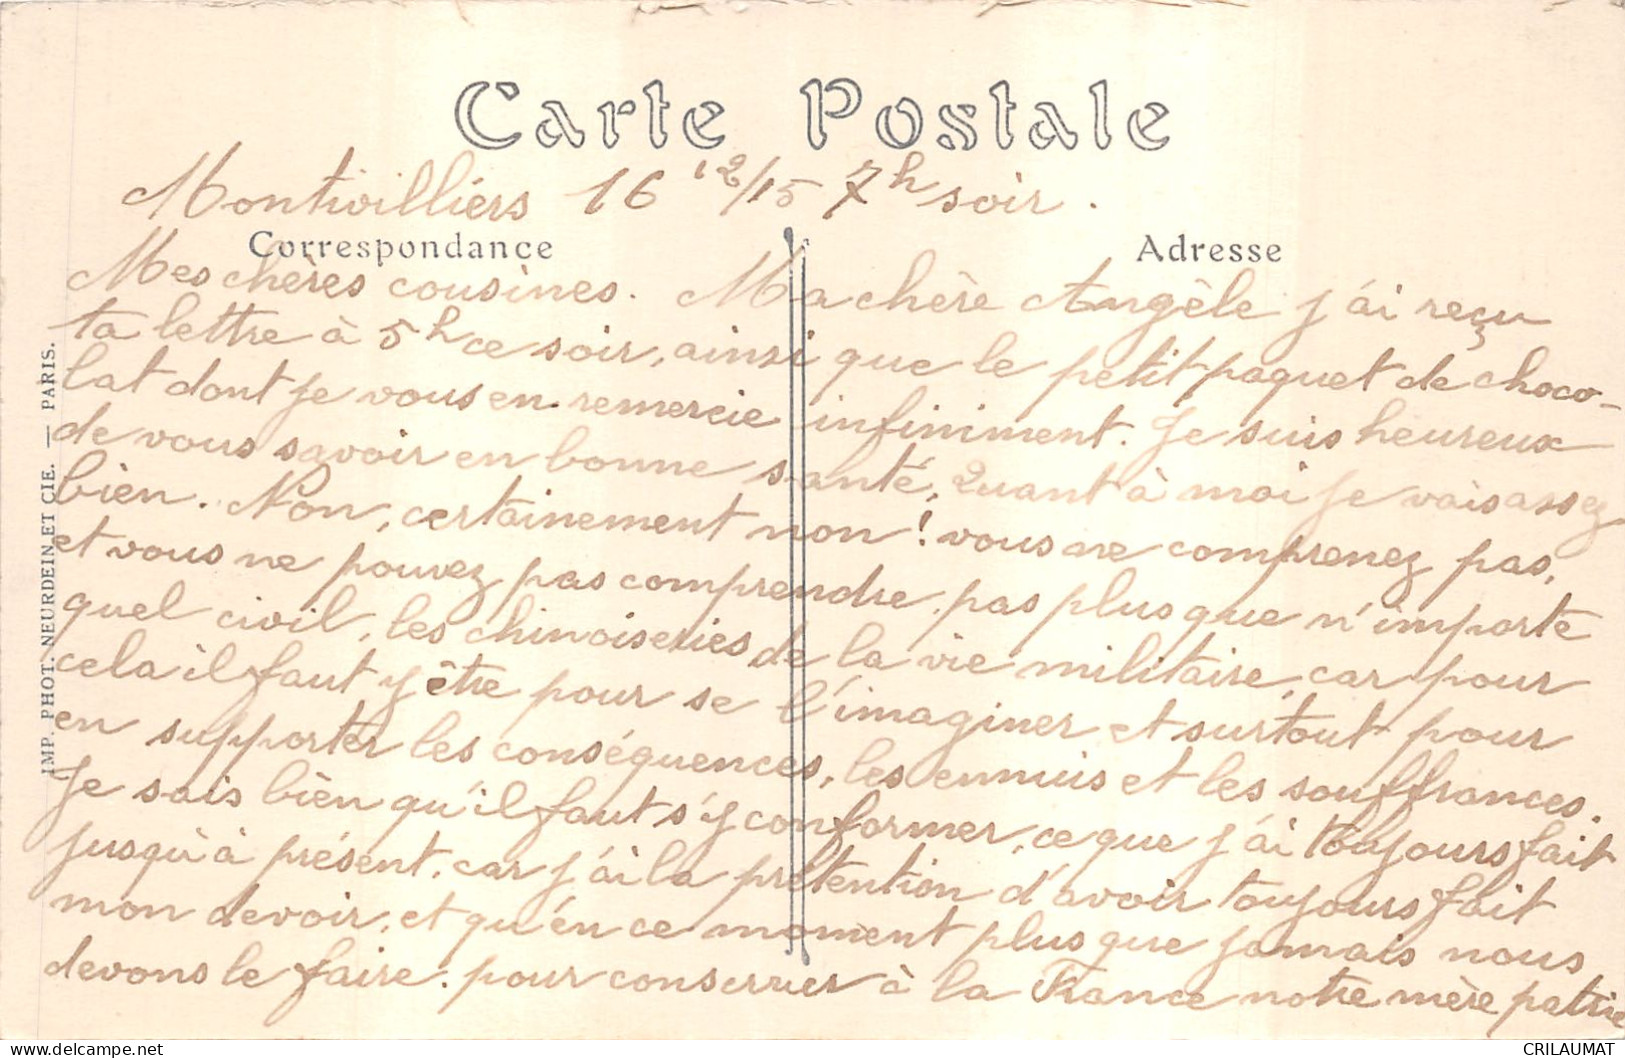 Carte Postale
Montivilliers 16 12/15 7h soir.
Correspondance
Adresse
Mes chères cousines. Ma chère Angèle j'ai reçu
ta lettre à 5h ce soir, ainsi que le petit paquet de choco-
lat dont je vous en remercie infiniment. Je suis heureux
de vous savoir en bonne santé, Quant à moi je vais assez
bien. Non, certainement non! vous ne comprenez pas,
et vous ne pouvez pas comprendre, pas plus que n'importe
quel civil, les chinoiseries de la vie militaire, car pour
cela il faut y être pour se l'imaginer et surtout pour
en supporter les conséquences, les ennuis et les souffrances.
Je sais bien qu'il faut s'y conformer, ce que j'ai toujours fait
jusqu'à présent, car j'ai la prétention d'avoir toujours fait
mon devoir, et qu'en ce moment plus que jamais nous
devons le faire. pour conserver à la France notre mère patrie
IMP. PHOT. NEURDEIN ET CIE. — PARIS.
delcampe.net
CRILAUMAT